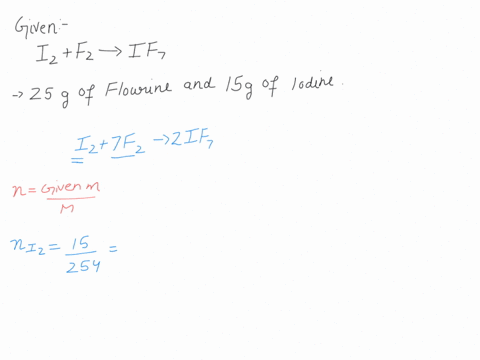 Given:-
I₂ + F₂ → IF₇
→ 25 g of Flourine and 15g of Iodine.
I₂ + 7F₂ → 2IF₇
n = Given m / M
n I₂ = 15 / 254 =